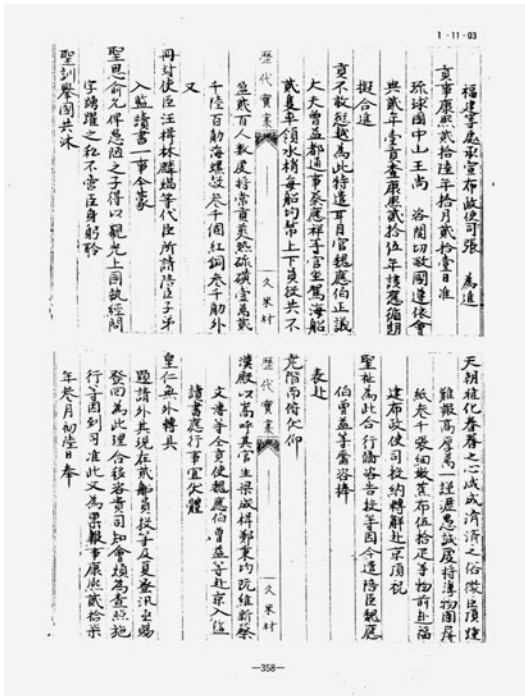 1-11-03
福建等處承宣布政使司張　為進
貢事康熙貳拾陸年拾月貳拾壹日准
琉球國中山王尚　咨開切敝國遵依會
典貳年壹貢查康熙貳拾伍年該應循期
擬合進
貢不敢愆越為此特遣耳目官魏應伯正議
大夫曾益都通事蔡應祥等官坐駕海船
貳隻率領水梢每船均幫上下員役共不
歷代寶案
久米村
盈貳百人數度持常貢煎熟硫磺壹萬貳
千陸百觔海螺殼叁千個紅銅叁千觔外
又
冊封使臣汪楫林麟焻等代臣所請陪臣子弟
入監讀書一事今蒙
聖恩俞允俾愚陋之子得以觀光上國執經問
字踴躍之私不啻臣身躬聆
聖訓舉國共沐
天朝雅化眷眷之心咸成濟濟之俗微臣頂踵
難報高厚萬一謹瀝愚誠虔持薄物圍屏
紙叁千張細嫩蕉布伍拾疋等物前赴福
建布政使司投納轉解赴京頂祝
聖祉為此合行備咨告投等因今遣陪臣魏應
伯曾益等齎咨捧
表赴
堯階而俯伏仰
歷代寶案
久米村
漢殿以嵩呼其官生梁成楫鄭秉均阮維新蔡
文溥等仝貢使魏應伯曾益等赴京入監
讀書應行事宜伏體
皇仁無外轉具
題請外其現在貳船員役等及夏發汛坐賜
發回為此理合移咨貴司知會煩為查照施
行等因到司准此又為稟報事康熙貳拾柒
年叁月初陸日奉
—358—